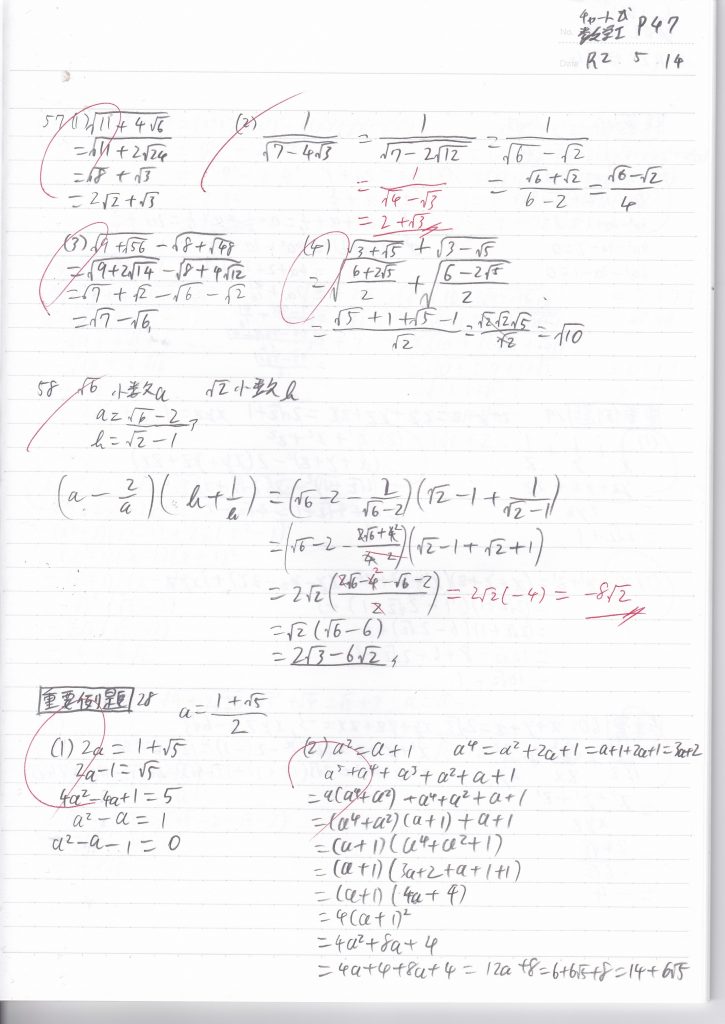 チャート式
数学I P47
No.
Date R2 5 14
57 (1) √(11+4√6)
=√(11+2√24)
=√8+√3
=2√2+√3
(2) 1/√(7-4√3) = 1/√(7-2√12) = 1/(√6-√2)
= 1/(√4-√3) = (√6+√2)/(6-2) = (√6-√2)/4
= 2+√3
(3) √(9+√56) - √(8+√48)
=√(9+2√14) - √(8+4√12)
=√7+√2-√6-√2
=√7-√6
(4) √(3+√5) + √(3-√5)
=√((6+2√5)/2) + √((6-2√5)/2)
=(√5+1+√5-1)/√2 = √2√2√5/√2 = √10
58 √6 小数a √2 小数b
a=√6-2
b=√2-1
(a-2/a)(b+1/b) = (√6-2-2/(√6-2))(√2-1+1/(√2-1))
=(√6-2-(2√6+4)/2)(√2-1+√2+1)
=2√2((2√6-4-√6-2)/2) = 2√2(-4) = -8√2
=√2(√6-6)
=2√3-6√2
重要例題 28 a=(1+√5)/2
(1) 2a=1+√5
2a-1=√5
4a²-4a+1=5
a²-a=1
a²-a-1=0
(2) a²=a+1 a⁴=a²+2a+1=a+1+2a+1=3a+2
a⁵+a⁴+a³+a²+a+1
=a(a⁴+a²)+a⁴+a²+a+1
=(a⁴+a²)(a+1)+a+1
=(a+1)(a⁴+a²+1)
=(a+1)(3a+2+a+1+1)
=(a+1)(4a+4)
=4(a+1)²
=4a²+8a+4
=4a+4+8a+4=12a+8=6+6√5+8=14+6√5